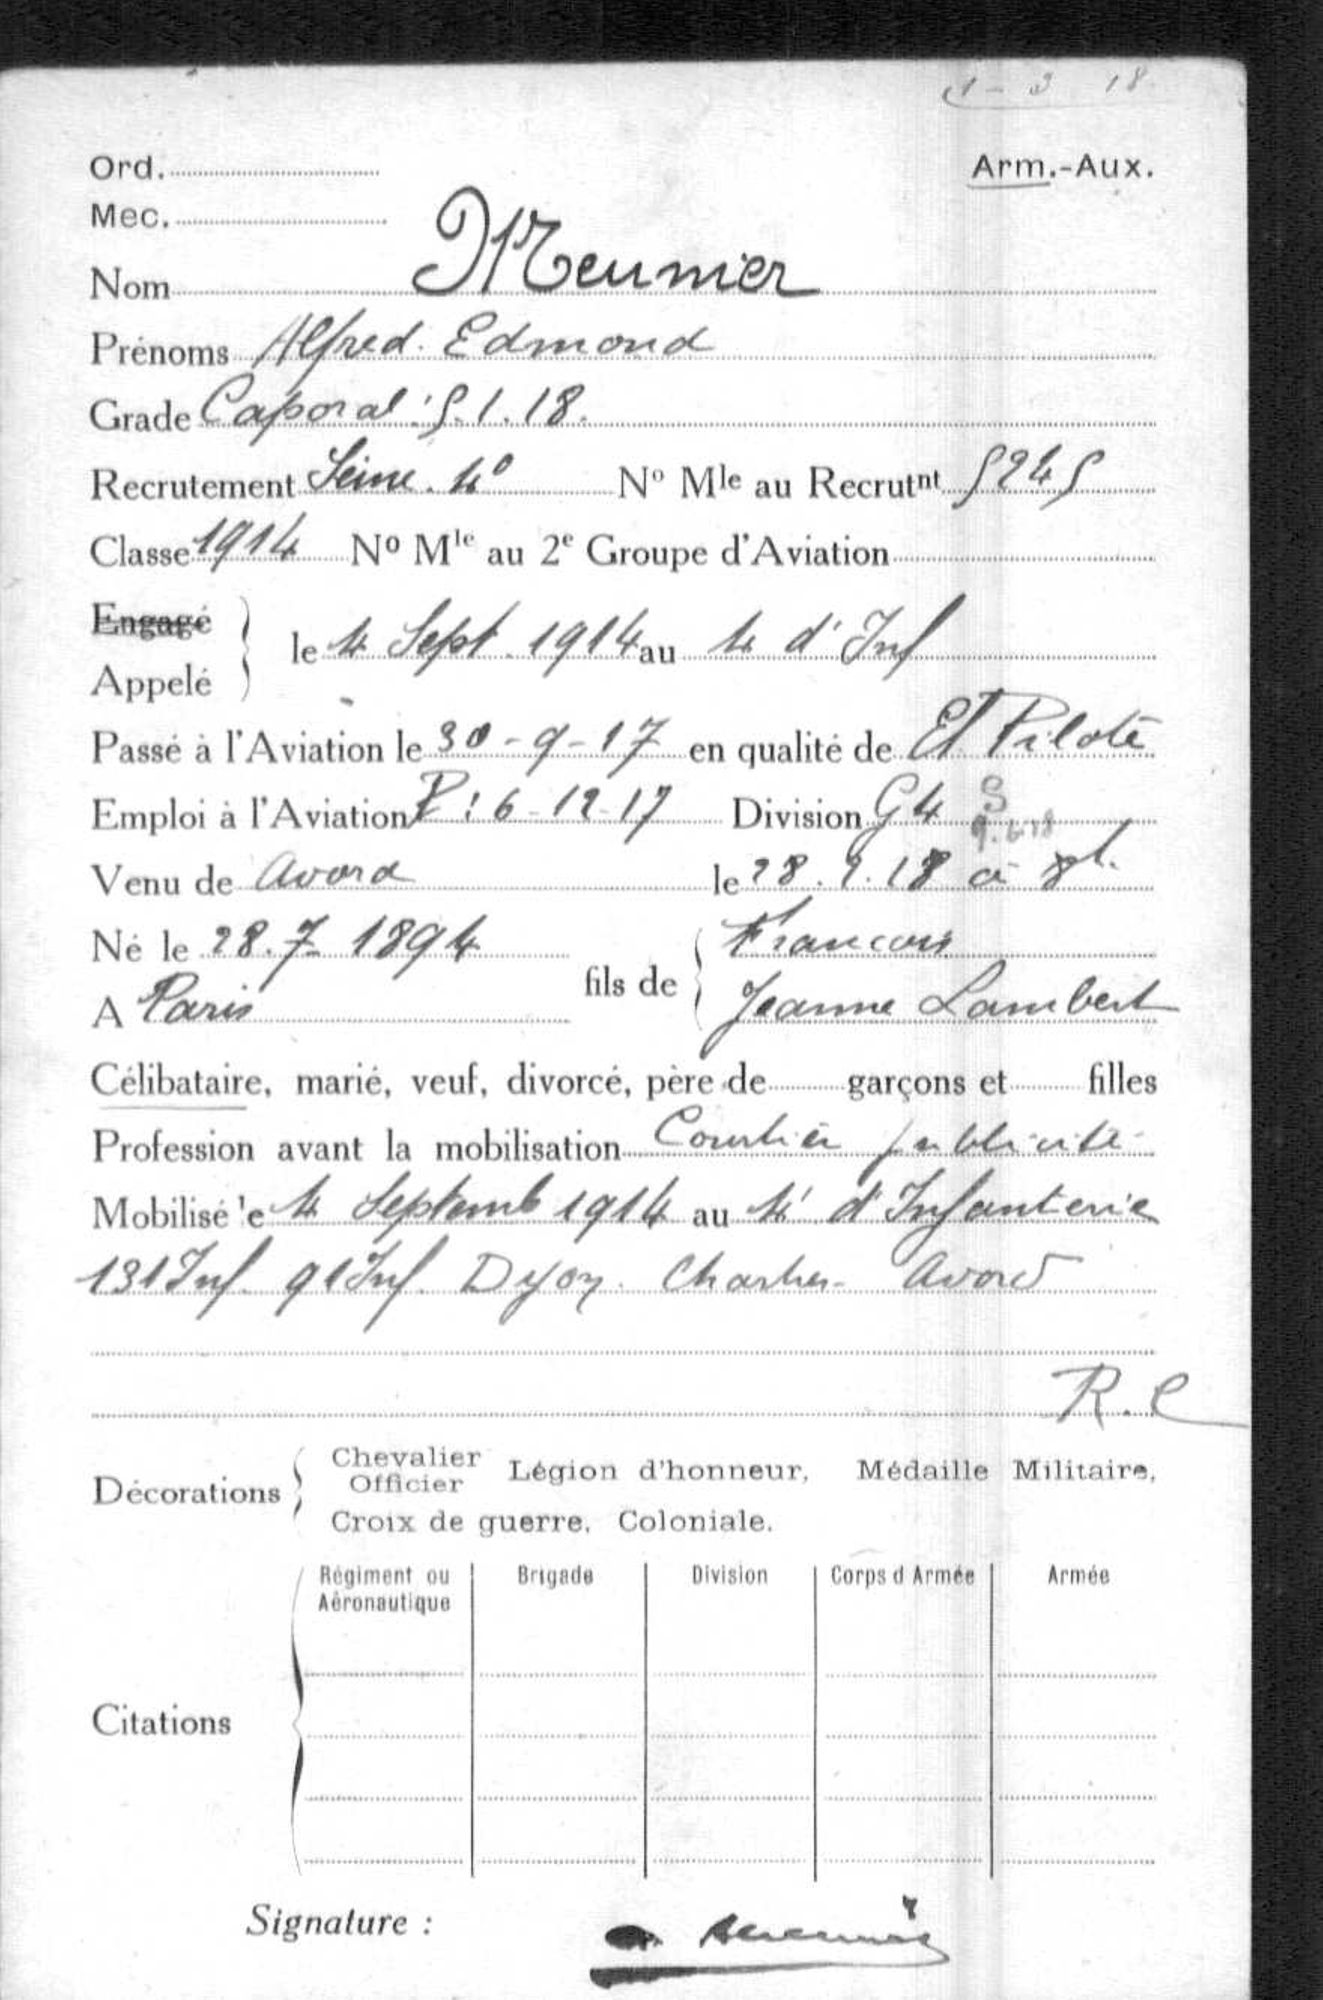 1-3 18
Ord.
Arm.-Aux.
Mec.
Nom Meunier
Prénoms Alfred. Edmond
Grade Caporal: 5.1.18.
Recrutement Seine. 4º Nº Mle au Recrutnt 5245
Classe 1914 Nº Mle au 2e Groupe d'Aviation
Engagé
Appelé
le 4 Sept. 1914 au 4 d'Inf
Passé à l'Aviation le 30-9-17 en qualité de El Pilote
Emploi à l'Aviation P: 6-12-17 Division G4 S
9.6.18
Venu de Avord le 28.2.18 à
Né le 28.7 1894
A Paris
fils de
Francois
Jeanne Lambert
Célibataire, marié, veuf, divorcé, père de garçons et filles
Profession avant la mobilisation Courtier publicité
Mobilisé le 4 Septemb 1914 au 4 d'Infanterie
131 Inf. 91 Inf. Dijon. Chartres. Avord
R.C
Décorations
Chevalier
Officier
Légion d'honneur, Médaille Militaire,
Croix de guerre, Coloniale.
Citations
Régiment ou Aéronautique
Brigade
Division
Corps d'Armée
Armée
Signature :
Meunier